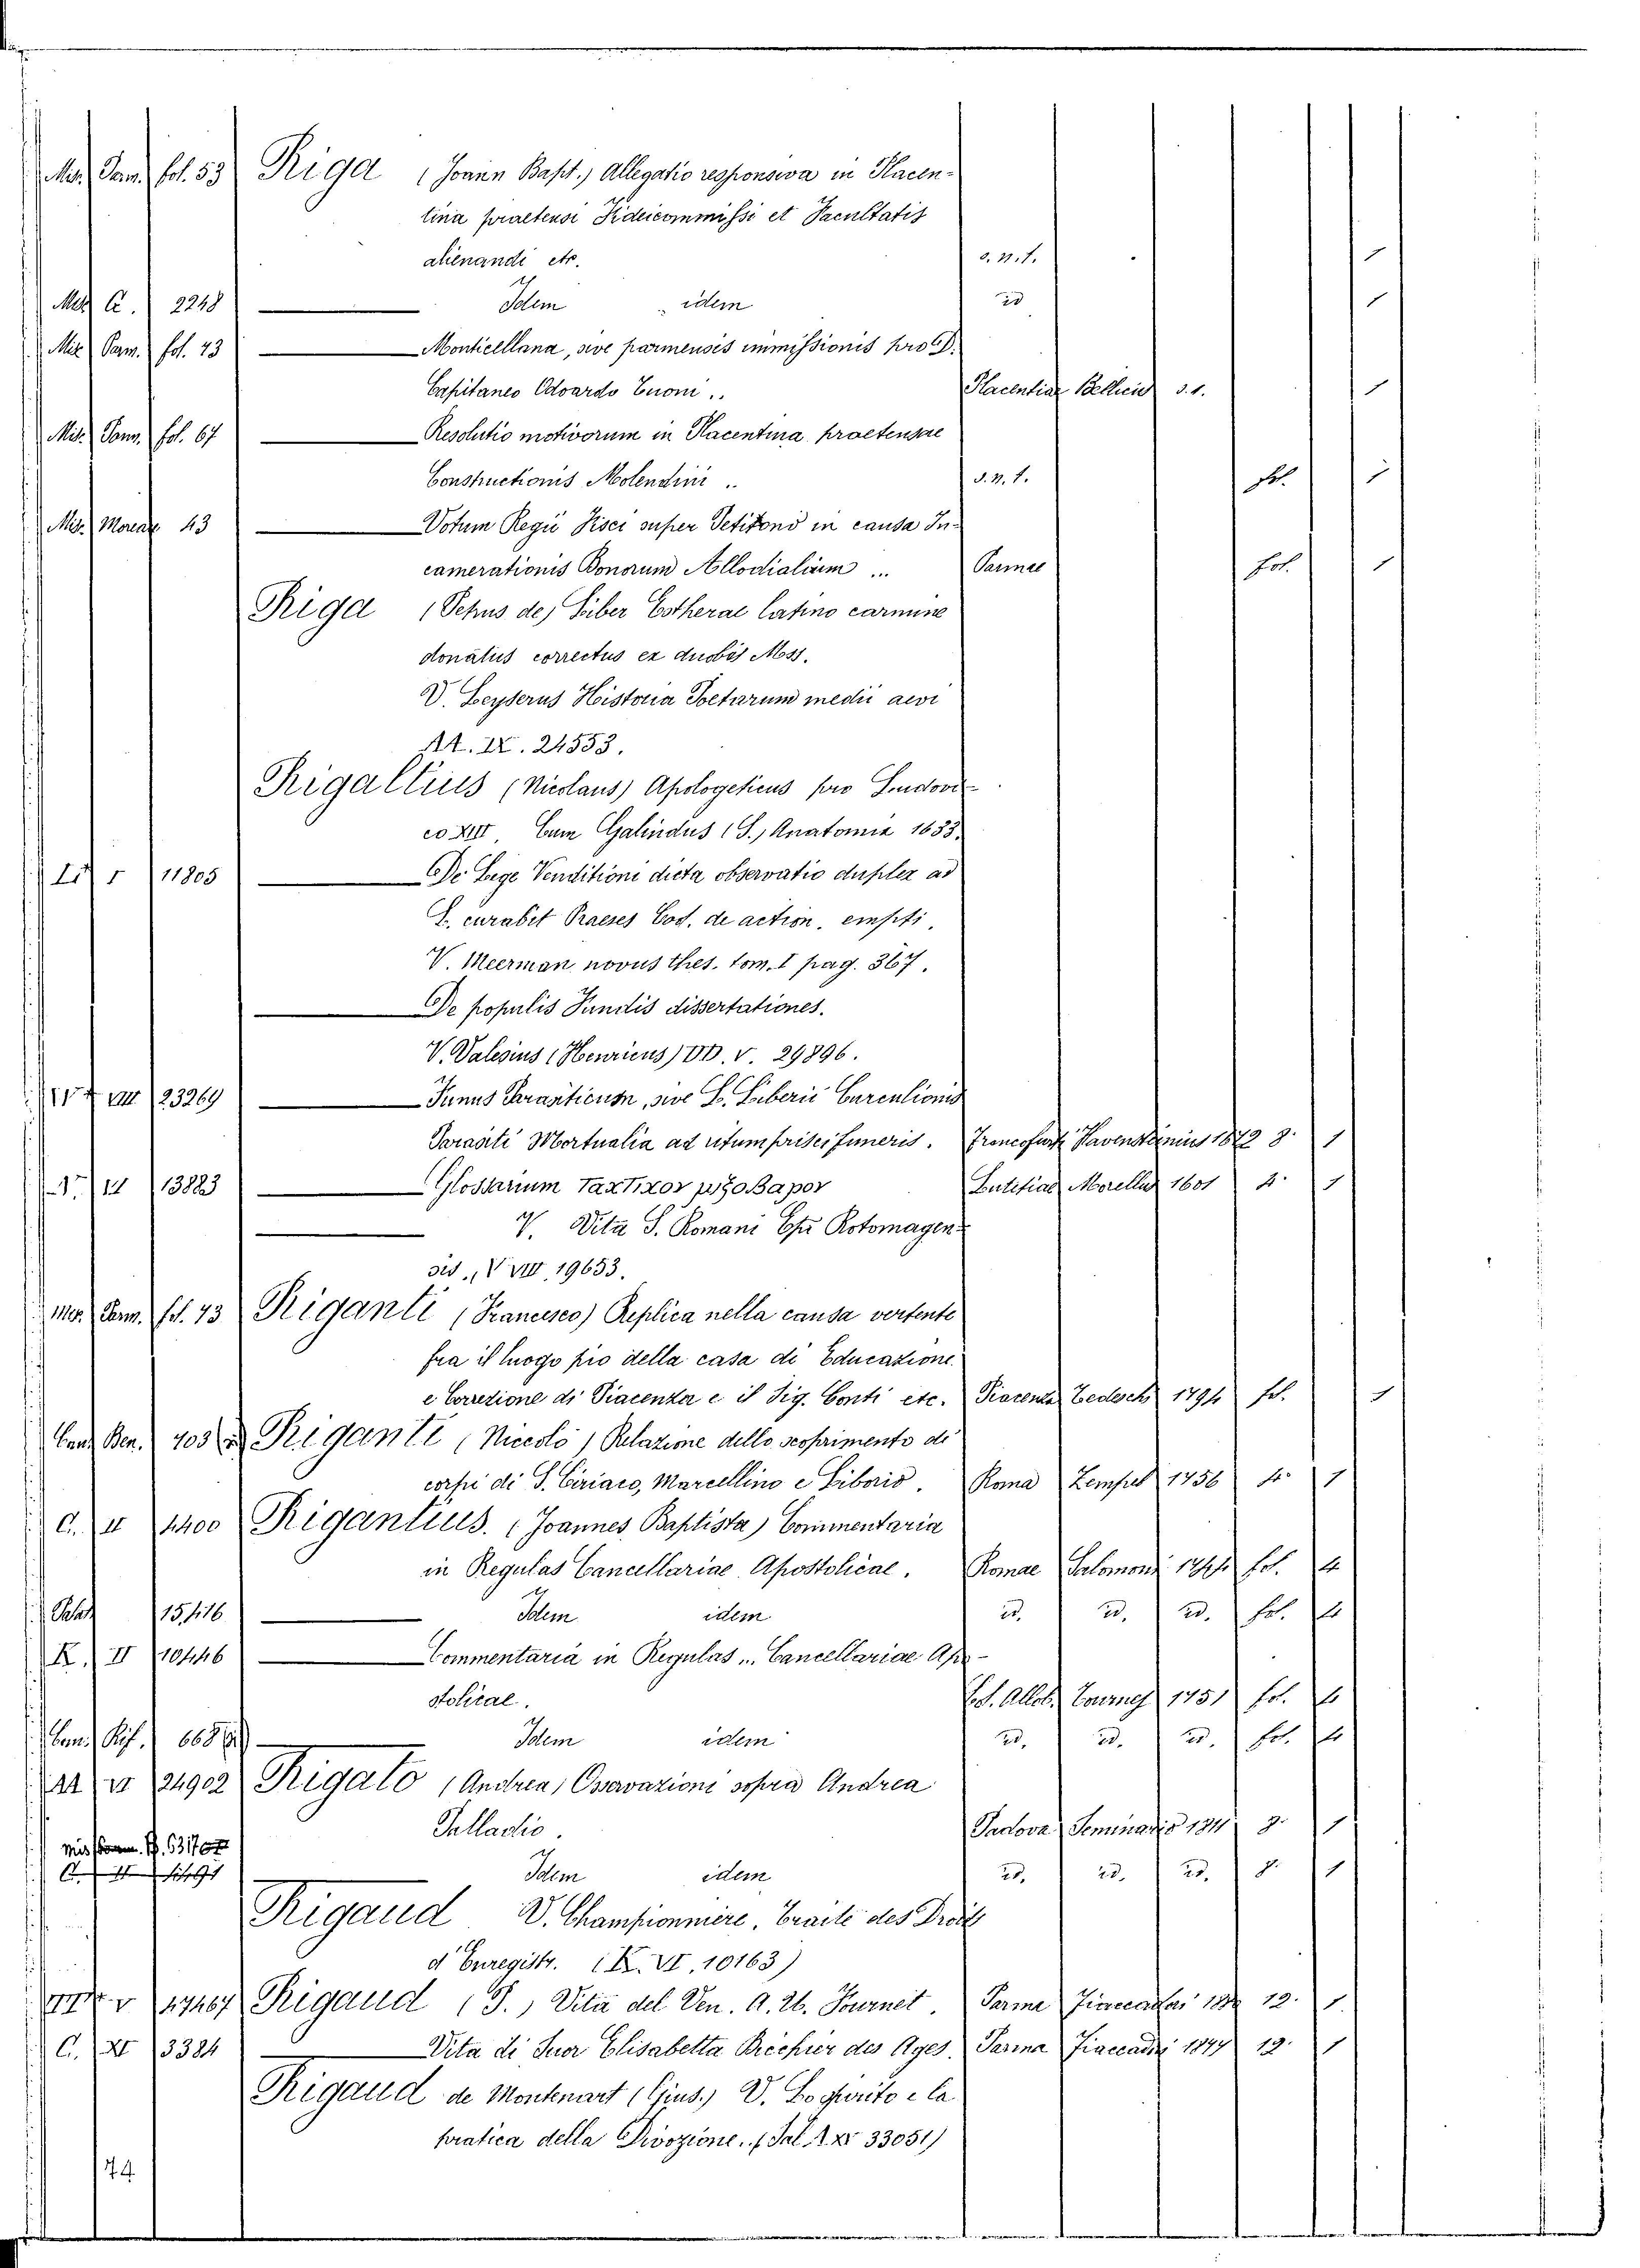 Mis. Parm. fol. 53 Riga (Joann Bapt.) Allegatio responsiva in Placen-
tina praetensi Fideicommissi et Facultatis
alienandi etc. s. n. t. 1
Mes A. 2248 Idem idem id 1
Mis Parm. fol. 43 Monticellana, sive parmensis immissionis pro D.
Capitaneo Odoardo Cuoni .. Placentiae Bellicis s. t. 1
Mis. Parm. fol. 67 Resolutio motivorum in Placentina praetensae
Constructionis Molendini .. s. n. t. fol. 1
Mis. Moreau 43 Votum Regii Fisci super Petitons in causa In-
camerationis Bonorum Allodialium ... Parmae fol. 1
Riga (Petrus de) Liber Estherae latino carmine
donatus correctus ex duobis Mss.
V. Leyserus Historia Poetarum medii aevi
At. IX. 24553.
Rigaltius (Nicolaus) Apologeticus pro Ludovi-
co XIII. Cum Galindus (S.) Anatomia 1633.
11805 De Lege Venditioni dicta observatio duplex ad
L. curabit Praeses Cod. de action. empti.
V. Meerman novus thes. tom. I pag. 367.
De populis Funilis dissertationes.
V. Valesius (Henricus) V. 29896.
VIII 23269 Funus Parasiticum, sive L. Liberii Curculionis
Parasiti Mortualia ad ritum prisci funeris. Francofurti Havensteinius 1672 8. 1
II 13883 Glossarium Taxtixov μιξοβαρβαρ Lutetiae Morellus 1601 4. 1
V. Vita S. Romani Epi Rotomagen-
sis, V VIII 19653.
Mis. Parm. fol. 43 Riganti (Francesco) Replica nella causa vertente
fra il luogo pio della casa di Educazione
e Correzione di Piacenza e il Sig. Conti etc. Piacenza Tedeschi 1794 fol. 1
Ben. 403 Riganti (Niccolò) Relazione dello scoprimento di
corpi di S. Ciriaco, Marcellino e Liborio. Roma Zempel 1756 4. 1
C. II 4400 Rigantius. (Joannes Baptista) Commentaria
in Regulas Cancellariae Apostolicae. Romae Salomoni 1744 fol. 4
Palat 15416 Idem idem id. id. id. fol. 4
K. II 10446 Commentaria in Regulas ... Cancellariae Apo-
stolicae. Col. Allob. Tournes 1751 fol. 4
Rif. 668 Idem idem id. id. id. fol. 4
24902 Rigato (Andrea) Osservazioni sopra Andrea
Palladio. Padova Seminario 1811 8. 1
Idem idem id. id. id. 8. 1
Rigaud V. Championnière. Traité des Droits
d'Enregistr. (K. VI. 10163)
V 47467 Rigaud (J.) Vita del Ven. A. H. Fournet. Parma Fiaccadori 12. 1
C. XI 3384 Vita di Suor Elisabetta Bichier des Ages. Parma Fiaccadori 1847 12. 1
Rigaud de Montenart (Gius.) V. Lo spirito e la
pratica della Divozione. (Sal. A. XV 33051)
74